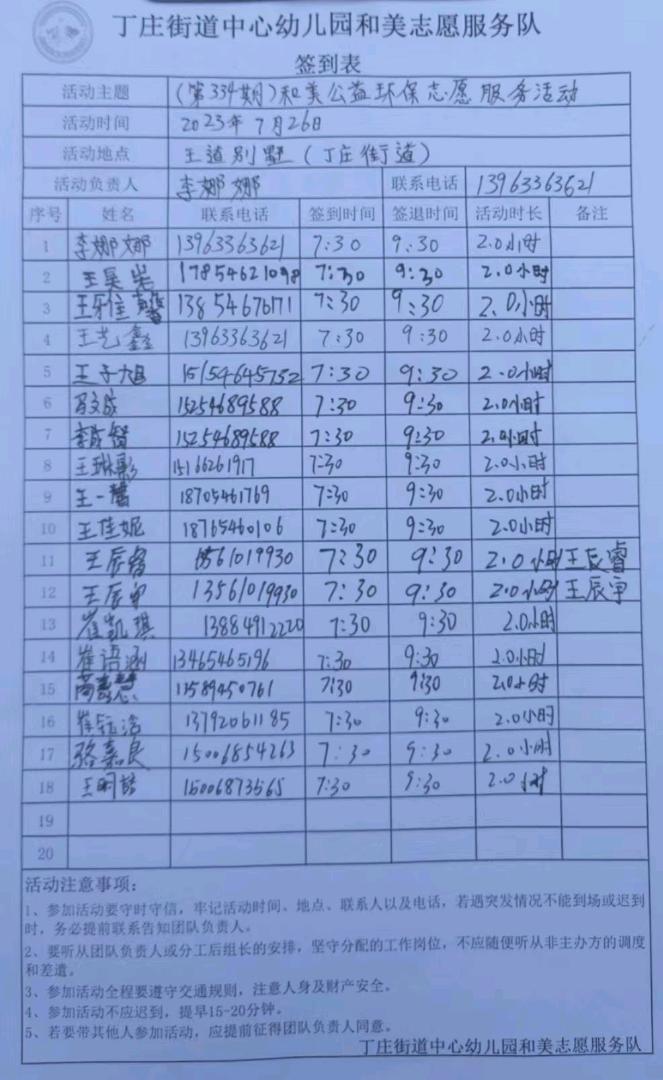 丁庄街道中心幼儿园和美志愿服务队
签到表
活动主题 (第334期)和美公益环保志愿服务活动
活动时间 2023年7月26日
活动地点 王道别墅(丁庄街道)
活动负责人 李娜娜 联系电话 13963363621
序号 姓名 联系电话 签到时间 签退时间 活动时长 备注
1 李娜娜 13963363621 7:30 9:30 2.0小时
2 王昊 17854621098 7:30 9:30 2.0小时
3 王 13854676171 7:30 9:30 2.0小时
4 王艺鑫 13963363621 7:30 9:30 2.0小时
5 王子旭 15154645752 7:30 9:30 2.0小时
6 15254689588 7:30 9:30 2.0小时
7 李 15254689588 7:30 9:30 2.0小时
8 王琳彭 15166261917 7:30 9:30 2.0小时
9 王一馨 18705461769 7:30 9:30 2.0小时
10 王佳妮 18765460106 7:30 9:30 2.0小时
11 王辰睿 13561019930 7:30 9:30 2.0小时 王辰睿
12 王辰宇 13561019930 7:30 9:30 2.0小时 王辰宇
13 崔凯琪 13884912220 7:30 9:30 2.0小时
14 崔语涵 13465465196 7:30 9:30 2.0小时
15 慧 11589450761 7:30 9:30 2.0小时
16 崔钰浩 13792061185 7:30 9:30 2.0小时
17 骆嘉良 15006854263 7:30 9:30 2.0小时
18 王明哲 15006873565 7:30 9:30 2.0小时
19
20
活动注意事项:
1、参加活动要守时守信,牢记活动时间、地点、联系人以及电话,若遇突发情况不能到场或迟到
时,务必提前联系告知团队负责人。
2、要听从团队负责人或分工后组长的安排,坚守分配的工作岗位,不应随便听从非主办方的调度
和差遣。
3、参加活动全程要遵守交通规则,注意人身及财产安全。
4、参加活动不应迟到,提早15-20分钟。
5、若要带其他人参加活动,应提前征得团队负责人同意。
丁庄街道中心幼儿园和美志愿服务队